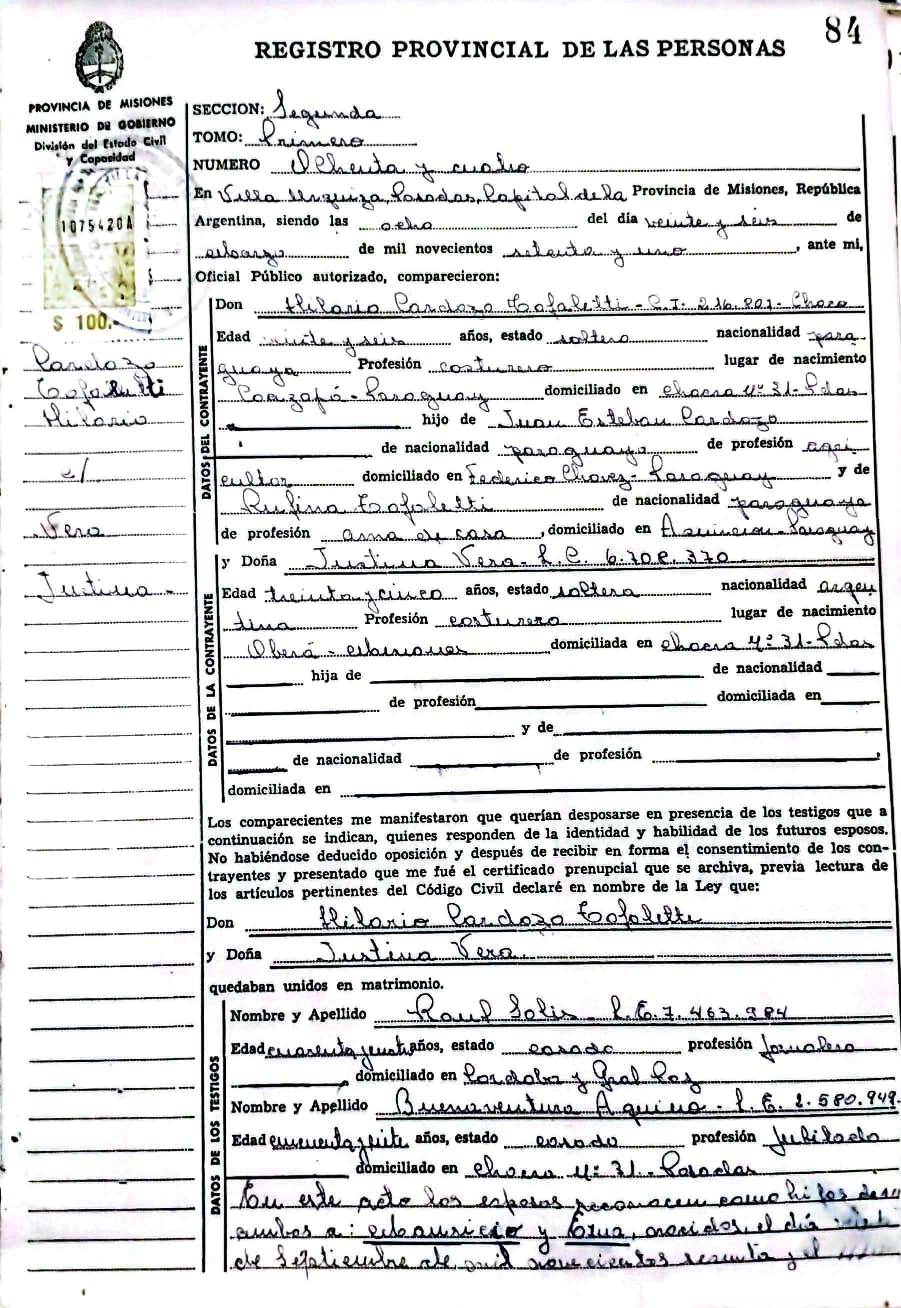 84
REGISTRO PROVINCIAL DE LAS PERSONAS
PROVINCIA DE MISIONES
MINISTERIO DE GOBIERNO
División del Estado Civil
y Capacidad
1075420A
$ 100.-
Cardozo
Tofaletti
Hilario
c/
Vera
Justina -
SECCION: Segunda
TOMO: Primero
NUMERO Ochenta y cuatro
En Villa Urquiza, Posadas, Capital de la Provincia de Misiones, República
Argentina, siendo las ocho del día veinte y séis de
Marzo de mil novecientos setenta y uno, ante mi,
Oficial Público autorizado, comparecieron:
DATOS DEL CONTRAYENTE
Don Hilario Cardozo Tofaletti - C.I. 216.801 - Chaco
Edad veinte y seis años, estado soltero nacionalidad para-
guaya Profesión costurero lugar de nacimiento
Caazapá - Paraguay domiciliado en chacra Nº 31 - Pdas
hijo de Juan Esteban Cardozo
de nacionalidad paraguayo de profesión agri
cultor domiciliado en Federico Chavez - Paraguay y de
Rufina Tofaletti de nacionalidad paraguaya
de profesión ama de casa, domiciliado en Asuncion - Paraguay
DATOS DE LA CONTRAYENTE
y Doña Justina Vera - L.C. 6.708.370
Edad treinta y cinco años, estado soltera nacionalidad argen
tina Profesión costurera lugar de nacimiento
Oberá - Misiones domiciliada en chacra Nº 31 - Pdas
hija de de nacionalidad
de profesión domiciliada en
y de
de nacionalidad de profesión
domiciliada en
Los comparecientes me manifestaron que querían desposarse en presencia de los testigos que a
continuación se indican, quienes responden de la identidad y habilidad de los futuros esposos.
No habiéndose deducido oposición y después de recibir en forma el consentimiento de los con-
trayentes y presentado que me fué el certificado prenupcial que se archiva, previa lectura de
los artículos pertinentes del Código Civil declaré en nombre de la Ley que:
Don Hilario Cardozo Tofaletti
y Doña Justina Vera
quedaban unidos en matrimonio.
DATOS DE LOS TESTIGOS
Nombre y Apellido Raul Solis - L.E. 7.463.984
Edad años, estado casado profesión Jornalero
domiciliado en Cordoba y Gral Paz
Nombre y Apellido Buenaventura Aquino - L.E. 2.580.949.
Edad años, estado casado profesión Jubilado
domiciliado en chacra Nº 31 - Posadas
En este acto los esposos reconocen como hijos de
ambos a: Mauricio y nacidos el día
de Septiembre de mil novecientos sesenta y